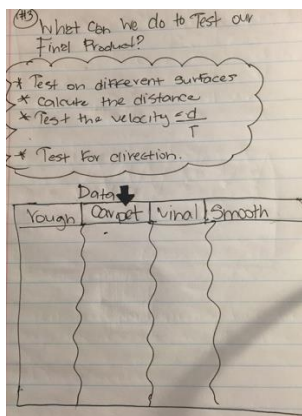 #3 What can we do to Test our
Final Product?
* Test on different surfaces
* Calcute the distance
* Test the velocity = d
T
* Test For direction.
Data
rough Carpet vinal Smooth